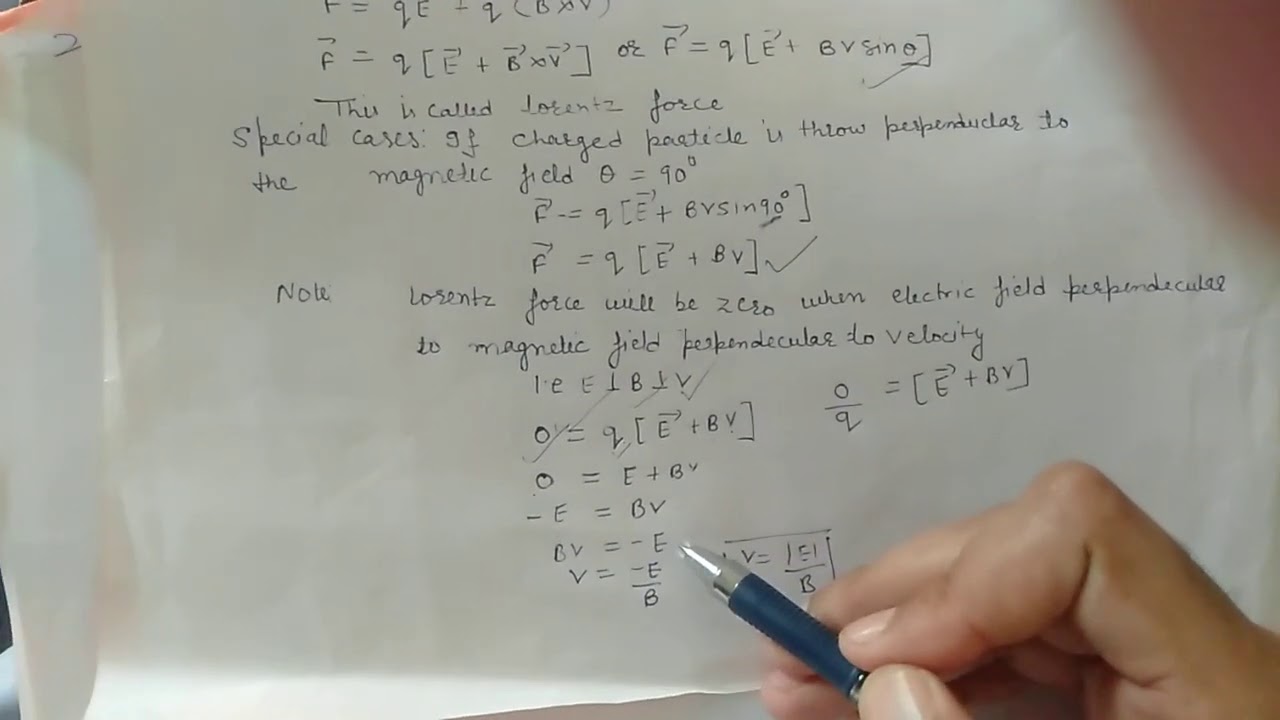 F = qE + q (B×V)
2
F⃗ = q [E⃗ + B⃗ ×V⃗] or F⃗ = q [E⃗ + BVsinθ]
This is called lorentz force
Special cases: If charged particle is throw perpenduclar to
the magnetic field θ = 90°
F⃗ = q [E⃗ + BVsin90°]
F⃗ = q [E⃗ + BV] ✓
Note lorentz force will be zero when electric field perpendecular
to magnetic field perpendecular to velocity
i.e E ⊥ B ⊥ V
0 = q [E⃗ + BV] 0/q = [E⃗ + BV]
0 = E + BV
- E = BV
BV = - E
V = -E/B V = |E|/B